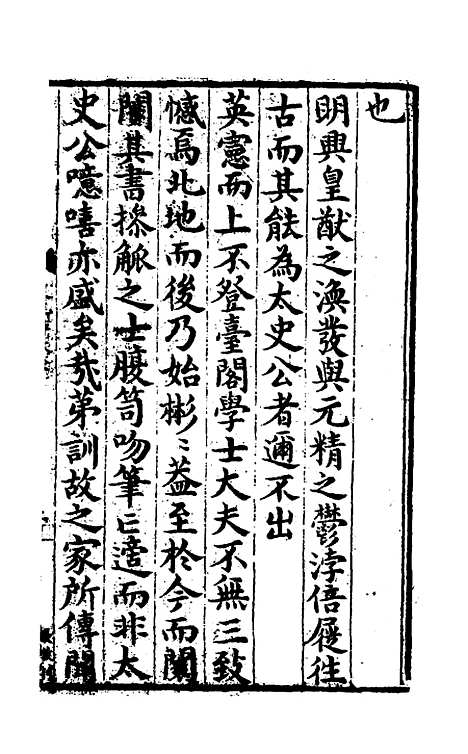 也
明興皇猷之渙發與元精之鬱浡倍屣往
古而其能為太史公者邇不出
英憲而上不登臺閣學士大夫不無三致
憾焉北地而後乃始彬〻葢至於今而闤
闠其書操觚之士腹笥吻筆亡適而非太
史公噫嘻亦盛矣哉苐訓故之家所傳聞